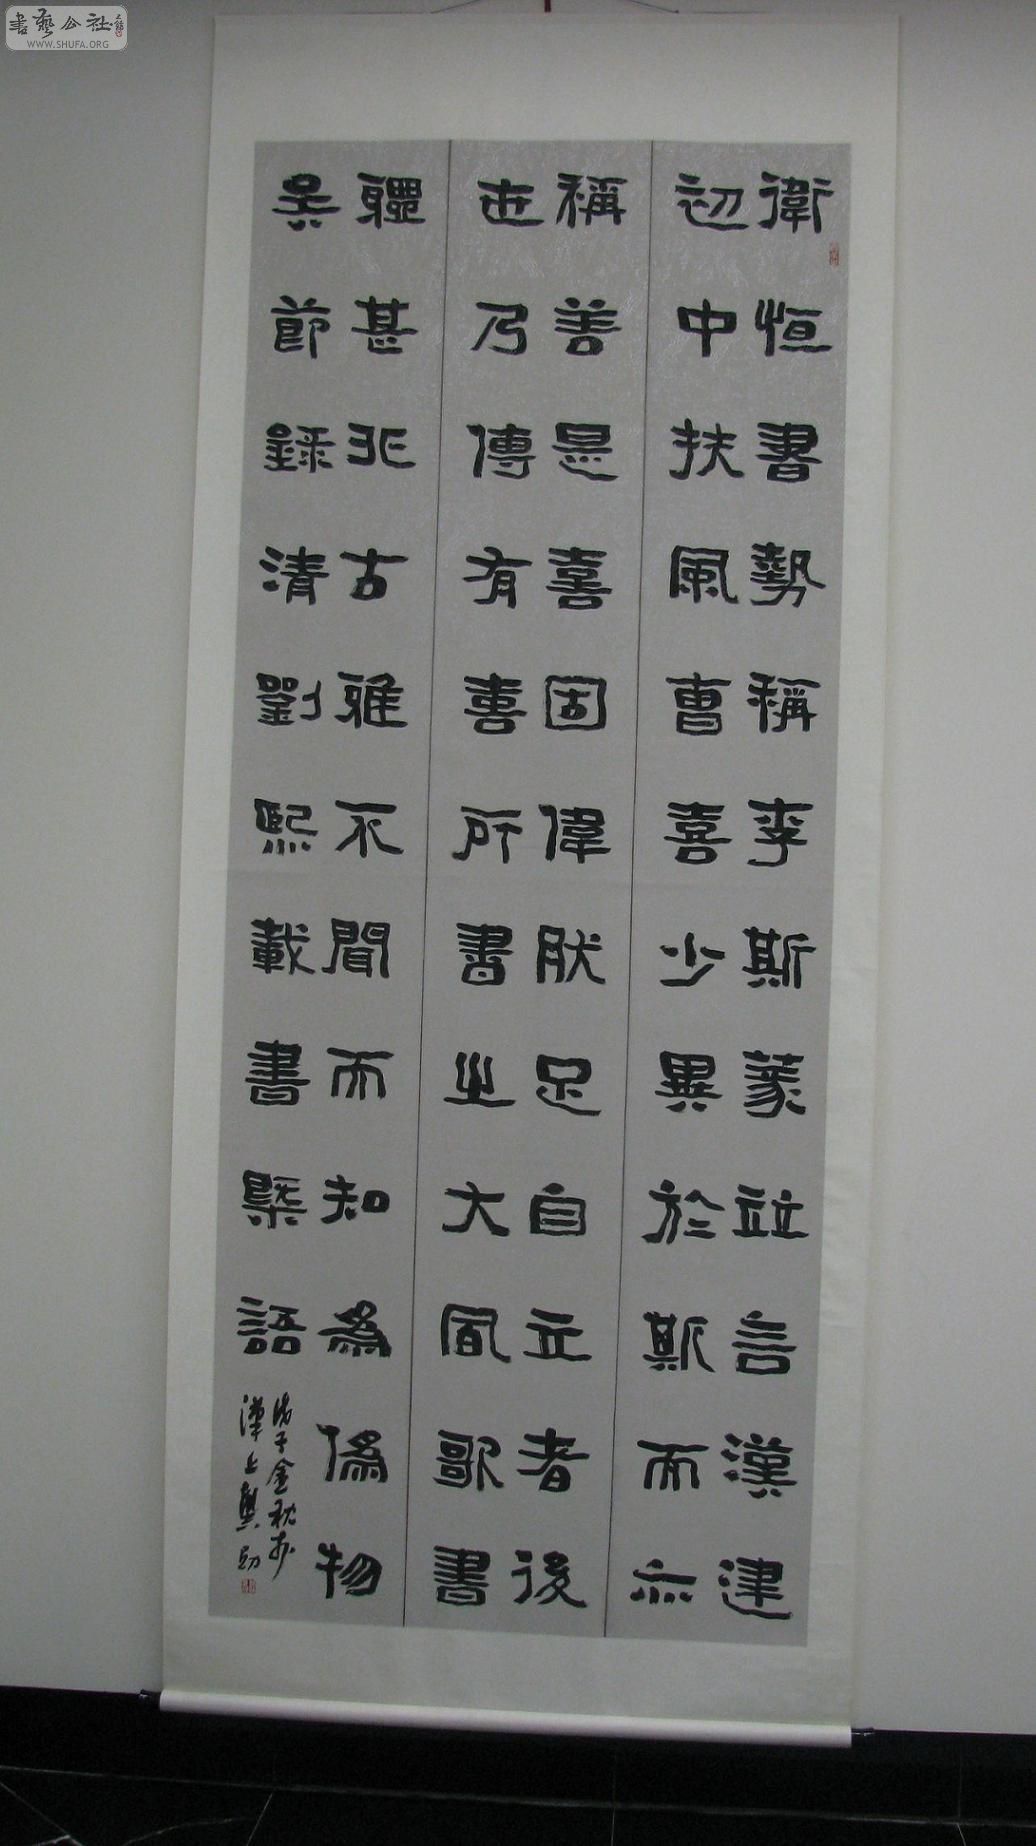 衛恒書勢稱李斯篆竝言漢建
初中扶風曹喜少異於斯而亦
稱善是喜固偉肰足自立者後
世乃傳有喜所書之大風歌書
體甚非古雅不聞而知為偽物
矣節錄清劉熙載書槩語
戊子金秋於
漢上
書藝公社
WWW.SHUFA.ORG